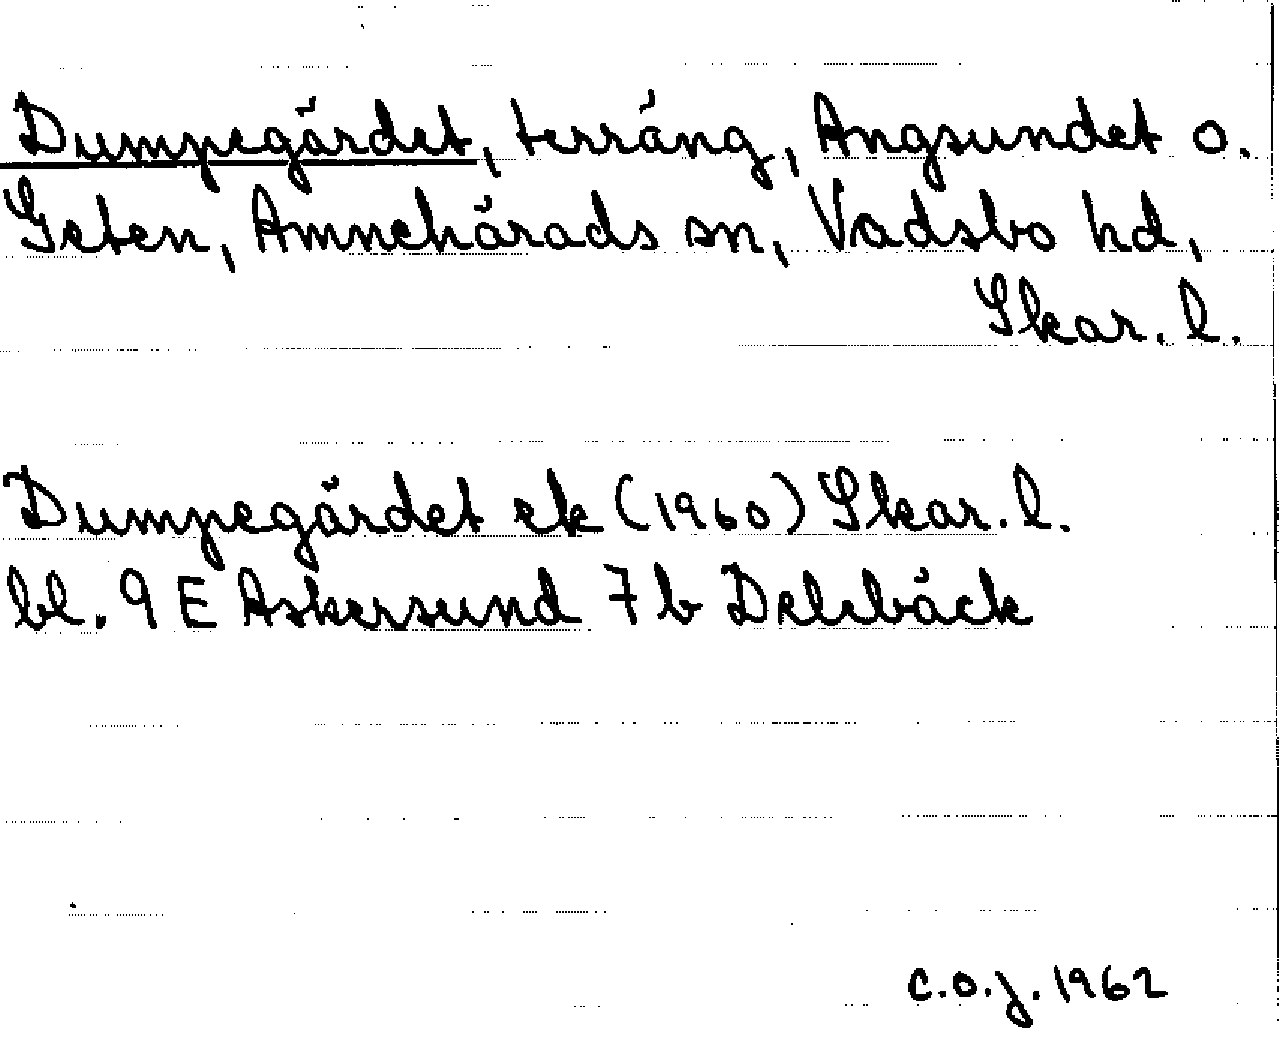 Dumpegärdet, terräng, Angsundet o.
Geten, Amnehärads sn, Vadsbo hd,
Skar. l.
Dumpegärdet ek (1960) Skar. l.
bl. 9 E Askersund 7 b Delebäck
C.O.J. 1962